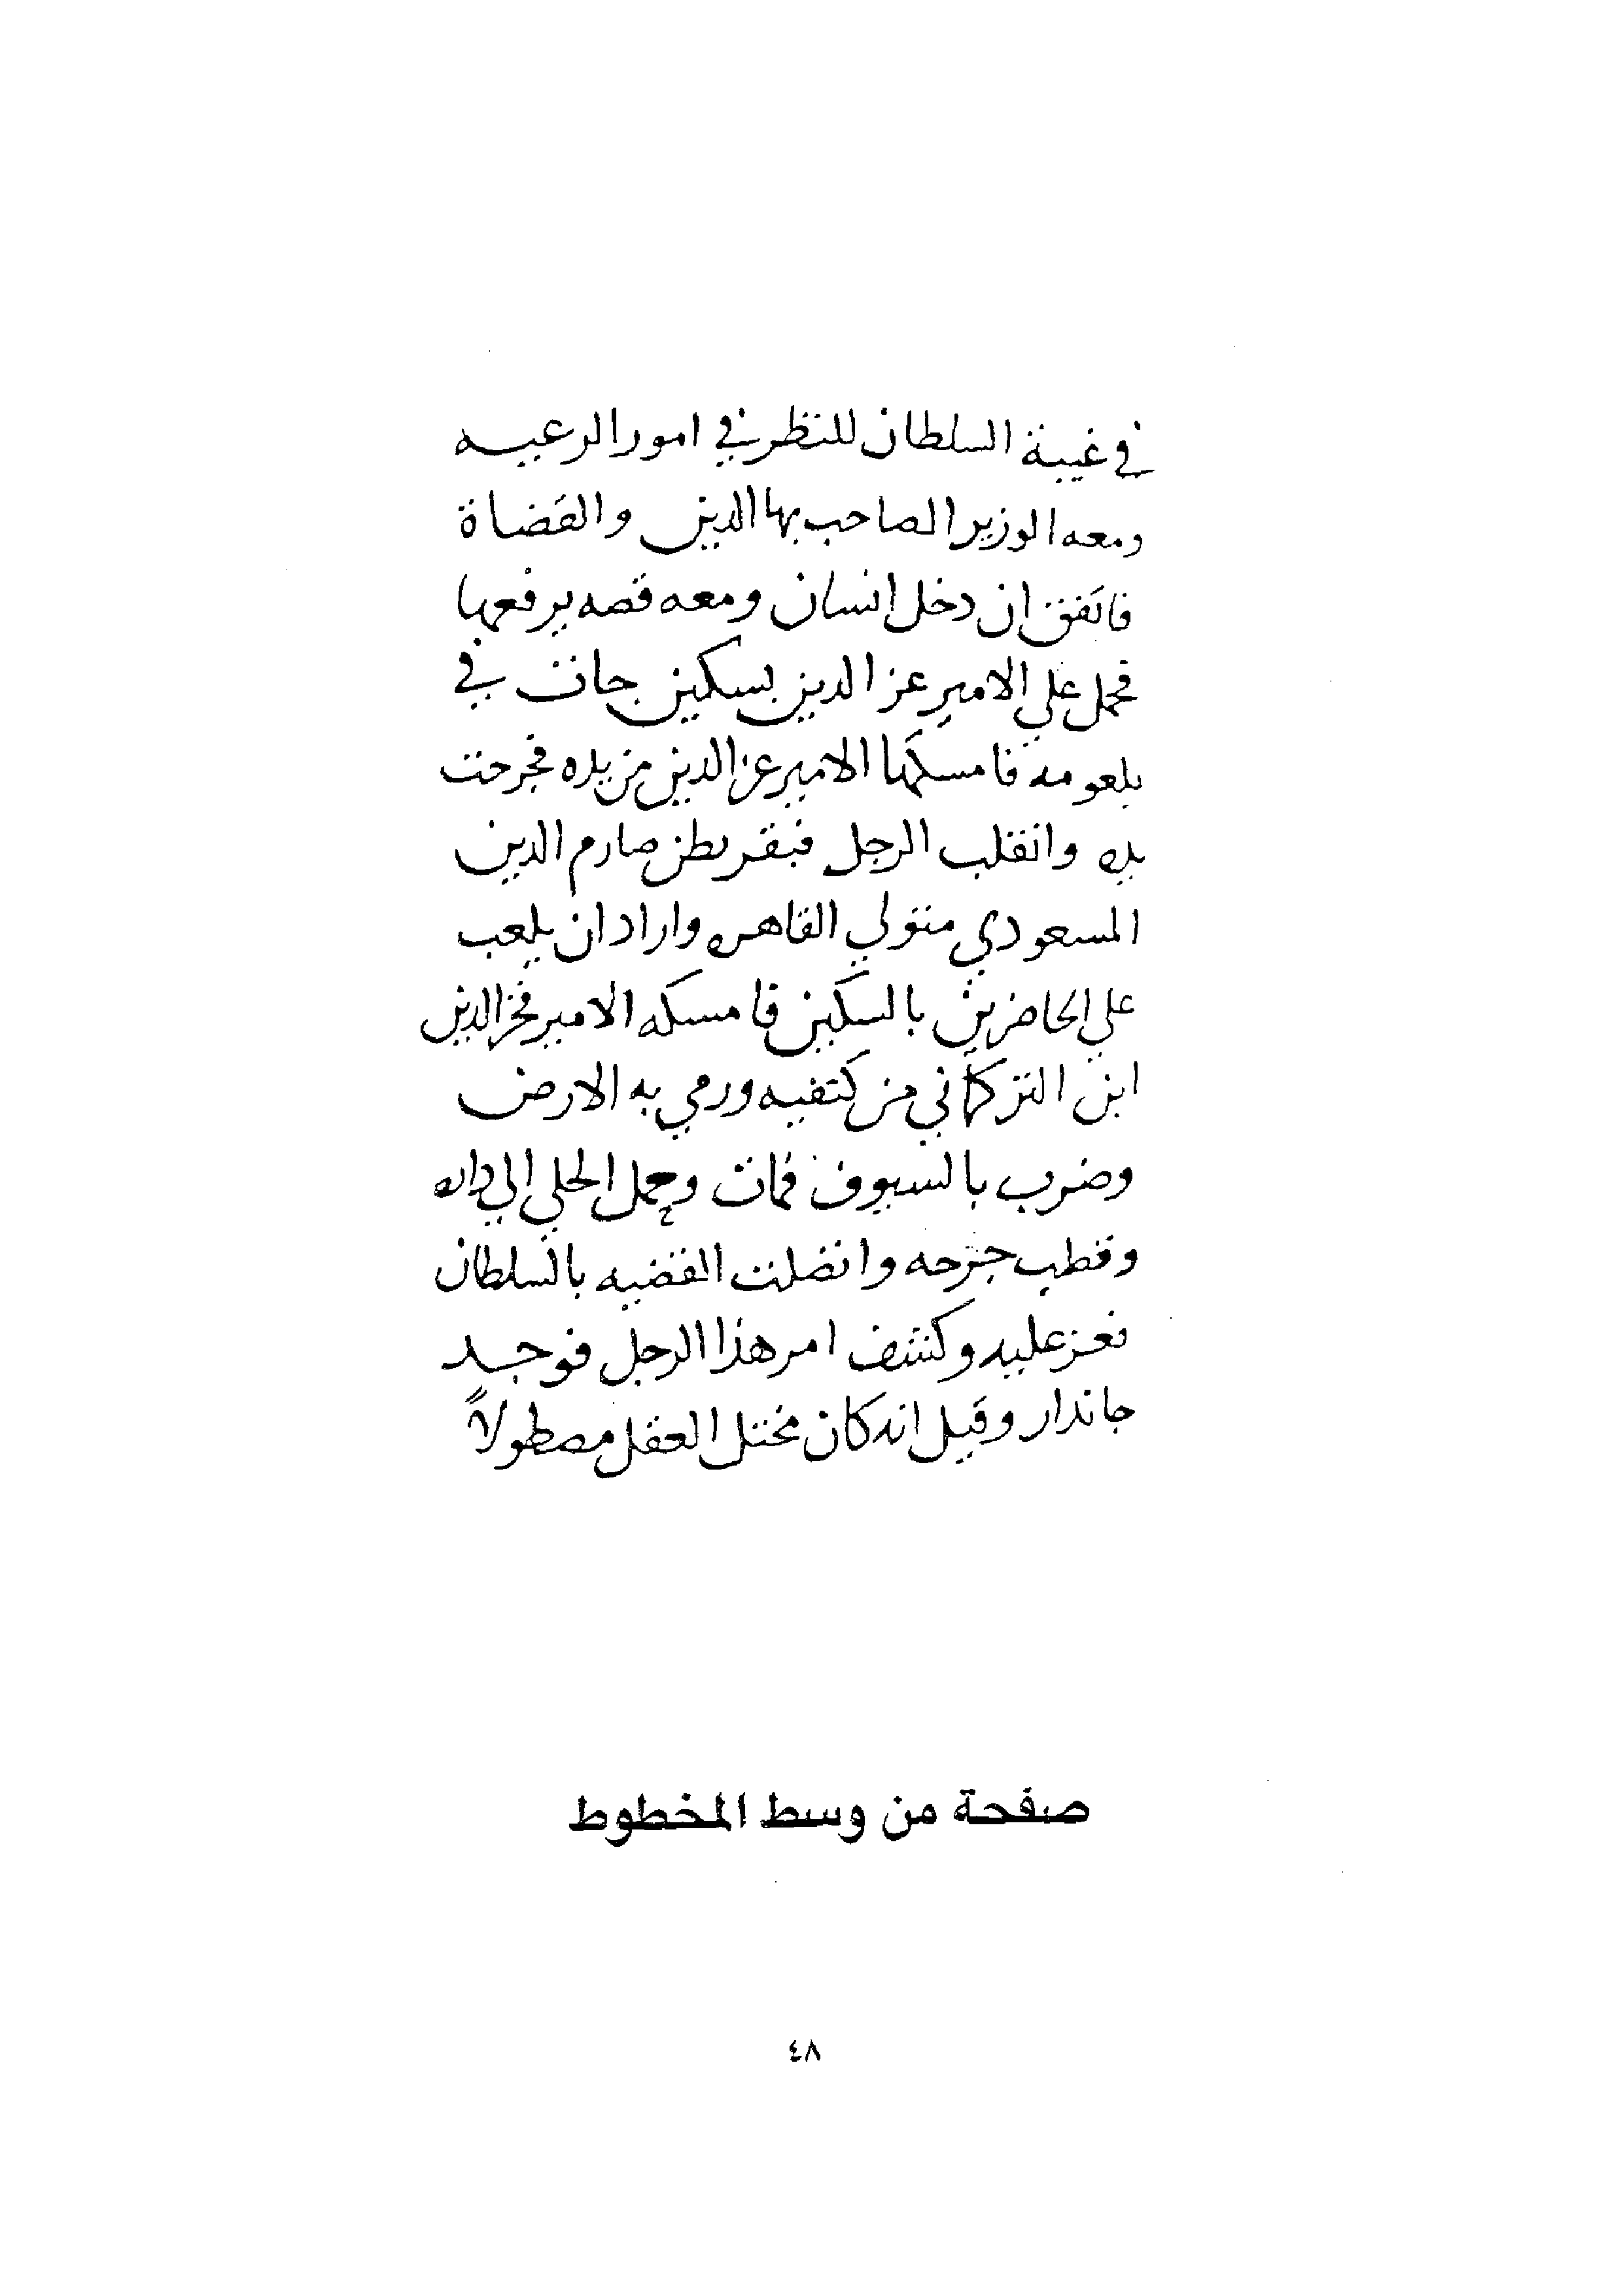 في غيبة السلطان للنظر في امور الرعيه
ومعه الوزير الصاحب بها الدين والقضاة
فاتفق ان دخل انسان ومعه قصه يرفعها
فحمل علي الامير عز الدين بسكين جات في
بلعومه فامسكها الامير عز الدين من يده فجرحت
يده وانقلب الرجل فبقر بطن صارم الدين
المسعودي متولي القاهره واراد ان يلعب
علي الحاضرين بالسكين فامسكه الامير فخر الدين
ابن التركماني من كتفيه ورمي به الارض
وضرب بالسيوف فمات وحمل الحلي الي داره
وقطب جرحه واتصلت القضيه بالسلطان
فعز عليه وكشف امر هذا الرجل فوجد
جاندار وقيل انه كان مختل العقل مصطولاً
صفحة من وسط المخطوط
٤٨